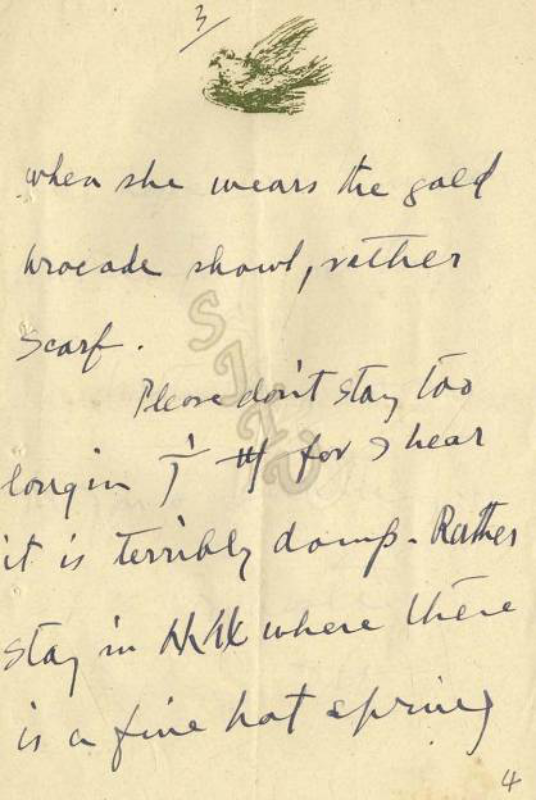 3
when she wears the gold
brocade shawl, rather
scarf.
Please don't stay too
long in for I hear
it is terribly damp. Rather
stay in where there
is a fine hot spring
4